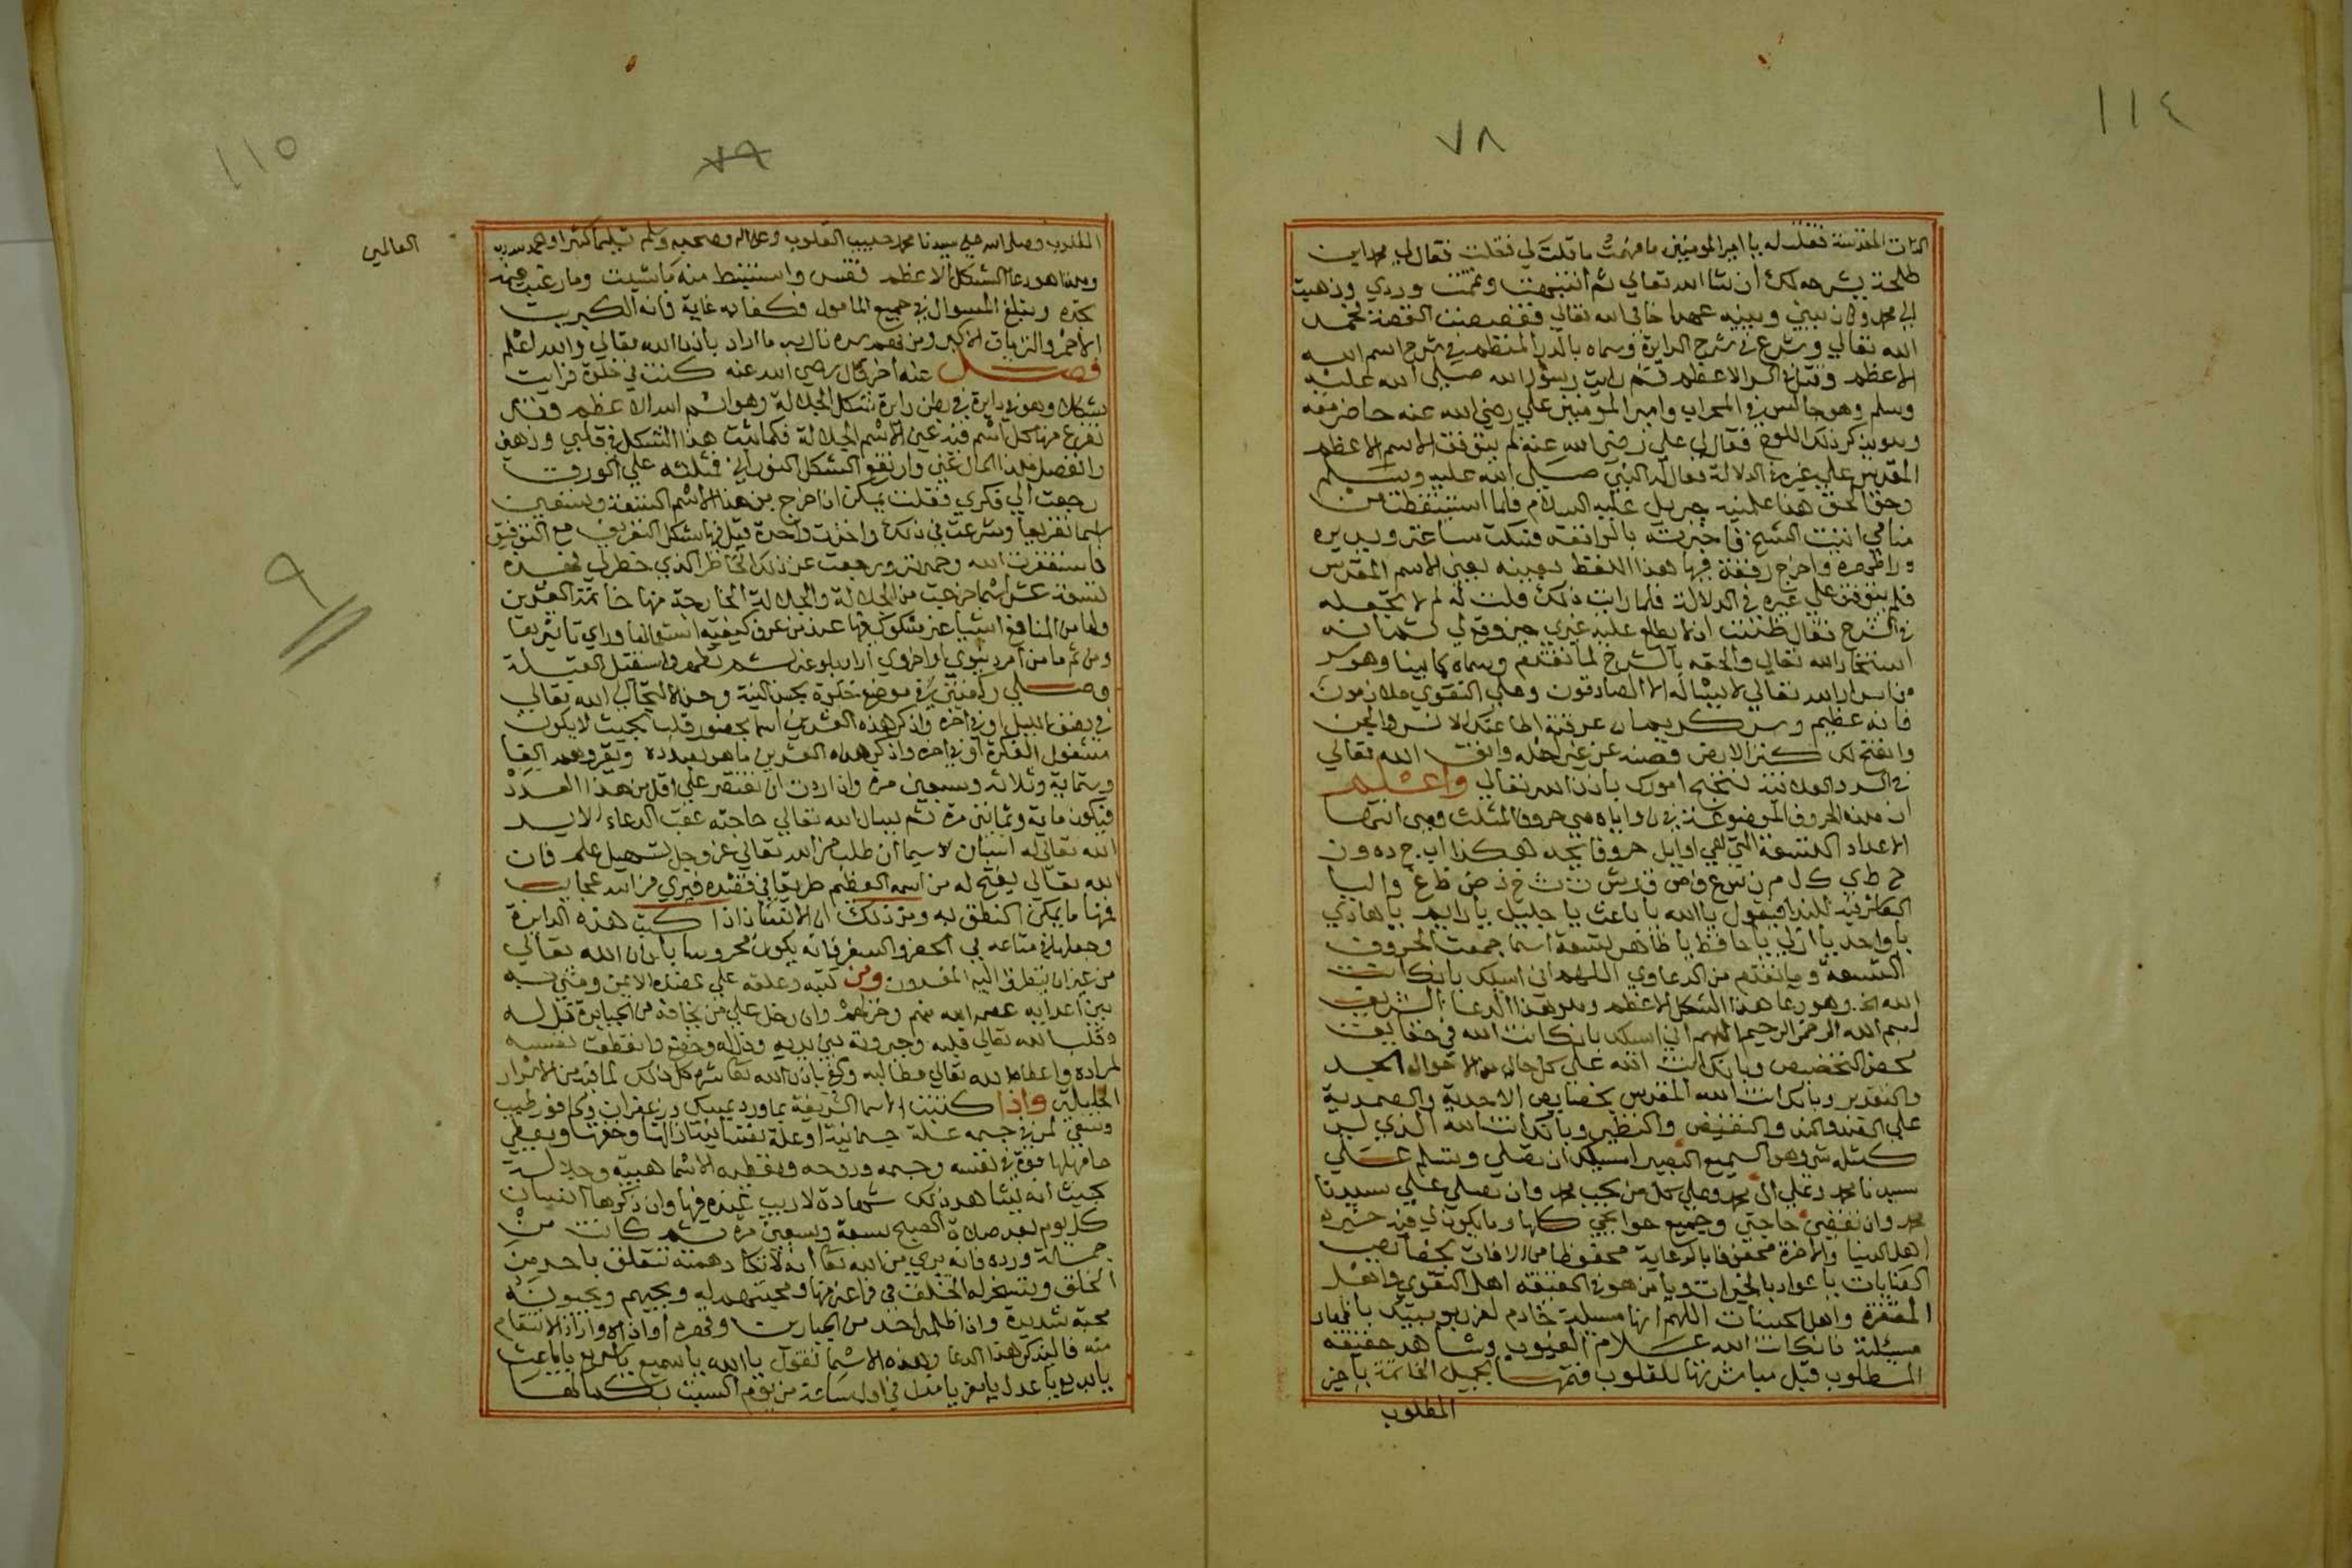 ١١٤
٧٨
الذات المقدسة فقلت له يا امير المومنين ما فهمت ما قلت لي فقلت فقال لي محمد ابن
طلحة يشرحه لك ان شا الله تعالي ثم انتبهت وتممت وردي وذهبت
الي محمد وكان بيني وبينه عهدا خاني الله تعالي فقصصت القصة فحمد
الله تعالي وشرع في شرح الدايرة وسماه بالدر المنظم في شرح اسم الله
الاعظم وقيل في السر الاعظم ثم رايت رسول الله صلي الله عليه
وسلم وهو جالس في المحراب وامير المومنين علي رضي الله عنه حاضر معه
وهو يذكر ذلك اللوح فقال لي علي رضي الله عنه لم يتوقف الاسم الاعظم
المقدس علي غير الدلالة فقال النبي صلي الله عليه وسلم
وحق الحق هذا علمنيه جبريل عليه السلام فلما استيقظت من
منامي اتيت الشيخ فاخبرته بالواقعه فسكت ساعة ويديره
واخرج رقعة فيها هذا اللفظ بعينه يعني الاسم المقدس
فلم يتوقف علي غيره في الدلالة فلما رايت ذلك قلت له لم لا تجعله
في الشرح فقال ظننت ان لا يطلع عليه غيري حين وقع لي ثم انه
استخار الله تعالي والحقه بالشرح لما تقدم وسماه كما بينا وهو سر
من اسرار الله تعالي لا يساله الا الصادقون وعلي التقوي ملازمون
فانه عظيم وسر كريم ان عرفته اطاعتك الانس والجن
وانفتح لك كنز الارض فصنه عن غير اهله واتق الله تعالي
في السر والعلانية تنجح امورك باذن الله تعالي واعلم
ان هذه الحروف الموضوعة في زواياه هي حروف المثلث وهي انها
الاعداد التسعة التي هي اوايل حروف ابجد هكذا اب ج د ه و ز
ح ط ي ك ل م ن س ع ف ص ق ر ش ت ث خ ذ ض ظ غ واليا
للندا فيقول يا الله يا باعث يا جليل يا دايم يا هادي
يا واحد يا ازلي يا حافظ يا ظاهر تسعة اسما جمعت الحروف
التسعة وما تقدم من الدعاوي اللهم اني اسيلك بانك انت
الله الخ وهو دعا هذا الشكل الاعظم وهو هذا الدعا الشريف
بسم الله الرحمن الرحيم اللهم اني اسيلك بانك انت الله في حقايق
محض التخصيص وبانك انت الله علي كل حال من الاحوال الجد
والتقدير وبانك انت الله المقدس بخصايص الاحدية والصمدية
علي الضد والند والنقيض والنظير وبانك انت الله الذي ليس
كمثله شي وهو السميع البصير اسيلك ان تصلي وتسلم علي
سيدنا محمد وعلي ال محمد وعلي كل من يحب محمد وان تصلي علي سيدنا
محمد وان تقضي حاجتي وجميع حوايجي كلها وما يكون لي فيه خيره
اهل الدنيا والاخرة محفوفا بالرعاية محفوظا من الافات بخصايص
العنايات يا عواد بالخيرات ويا من هو في الحقيقة اهل التقوي واهل
المغفرة واهل الحسنات اللهم انها مسيلة خادم لعز ربوبيتك
مسيلته فانك انت الله علام الغيوب وشاهد حقيقة
المطلوب قبل مباشرتها للقلوب فتمها بجميل الخاتمة يا خير
المطلوب
١١٥
٧٩
المطلوب وصلي الله علي سيدنا محمد حبيب القلوب وعلي اله وصحبه وسلم تسليما كثيرا والحمد لله رب
العالمين
وهذا هو دعا الشكل الاعظم فقس واستنبط منه ما شيت وما رغبت فيه
تجده وتبلغ السوال في جميع المامول فكفا به غاية فانه الكبريت
الاحمر والترياق الاكبر ومن فهم سره نال به ما اراد باذن الله تعالي والله اعلم
فصل عنه اخر قال رضي الله عنه كنت في خلوة فرايت
شكلا وهو في دايرة في بطن دايرة شكل الجلالة وهو اسم الله الاعظم وقد
تفرع منها كل اسم فيه عين الاسم الجلالة فكما ثبت هذا الشكل في قلبي وذهني
وانفصل هذا الحال عني وارتفع الشكل النوراني فمثلته علي الورق
رجعت الي فكري فقلت يمكن ان اخرج من هذا الاسم التسعة وتسعين
اسما تفريعا وشرعت في ذلك واخذت واحدة قبل فيها شكل التعريف مع التوفيق
فاستغفرت الله وحمدته ورجعت عن ذلك الخاطر الذي خطر لي فهذه
تسعة عشر اسما خرجت من الجلالة والجلالة الخارجة منها خاتمة العشرين
ولها من المنافع اشيا غير مشكوك فيها عند من عرف كيفية استعمالها وراي تاثيرها
ومن ثم ما من امر دنيوي او اخروي اراد بلوغه تطهر واستقبل القبلة
وصلي ركعتين في موضع خلوة بحسن النية وحسن الالتجا الي الله تعالي
في نصف الليل او في اخره واذكر هذه العشرين اسما بحضور قلب بحيث لا يكون
مشغول الفكرة او في اخره واذكر هذه العشرين ما هو بعدده وتقروهم الفا
وستماية وثلاثة وتسعين مرة وان اردت ان تقتصر علي اقل من هذا العدد
فيكون ماية وثمانين مرة ثم يسال الله تعالي حاجته عقب الدعاء
الله تعالي له اسبابا لا سيما ان طلب من الله تعالي عز وجل تسهيل علم فان
الله تعالي يفتح له من اسمه العظيم طريقا في قصده فيري من الله عجايب
فهنا ما يمكن النطق به ومن ذلك ان الانسان اذا كتب هذه الدايرة
وجعلها في متاعه في الحضر والسفر فانه يكون محروسا باذن الله تعالي
من غير ان يتطرق اليه المفسدون ومن كتبه وعلقه علي عضده الايمن ومشي به
بين اعدايه عصمه الله منهم وخذلهم وان دخل علي من يخافه من الجبابرة ذل له
وقلب الله تعالي قلبه وجبروته بين يديه وذل له وخضع وانقطعت نفسه
لمراده واعطاه الله تعالي مطالبه وكفي باذن الله تعالي شر كل ذلك لما فيه من الاسرار
الجليلة واذا كتبت الاسما الشريفة بماورد ومسك وزعفران وكافور طيب
وسقي لمن في جسمه علة جسمانية او علة نفسانية ازالتها وخففتها ويعطي
حاملها قوة في نفسه وجسمه وروحه وتعطيه الاسما هيبة وجلالة
بحيث انه يشاهد ذلك شهادة لا ريب عنده فيها وان ذكرها انسان
كل يوم بعد صلاة الصبح تسعة وتسعين مرة ثم كانت من
جملة ورده فانه يري من الله تعا انه لا تكاد همته تتعلق باحد من
الخلق ويتسخر له الخلق في فراغه منها ومحبتهم له ويحبهم ويحبونه
محبة شديدة واذا ظلمه احد من الجبارين وقهره او اذاه واراد الانتقام
منه فاليذكر هذا الدعا وهذه الاسما تقول يا الله يا سميع يا سريع يا باعث
يا بديع يا عدل يا معز يا مذل في اول ساعة من يوم السبت بكمالها
٩